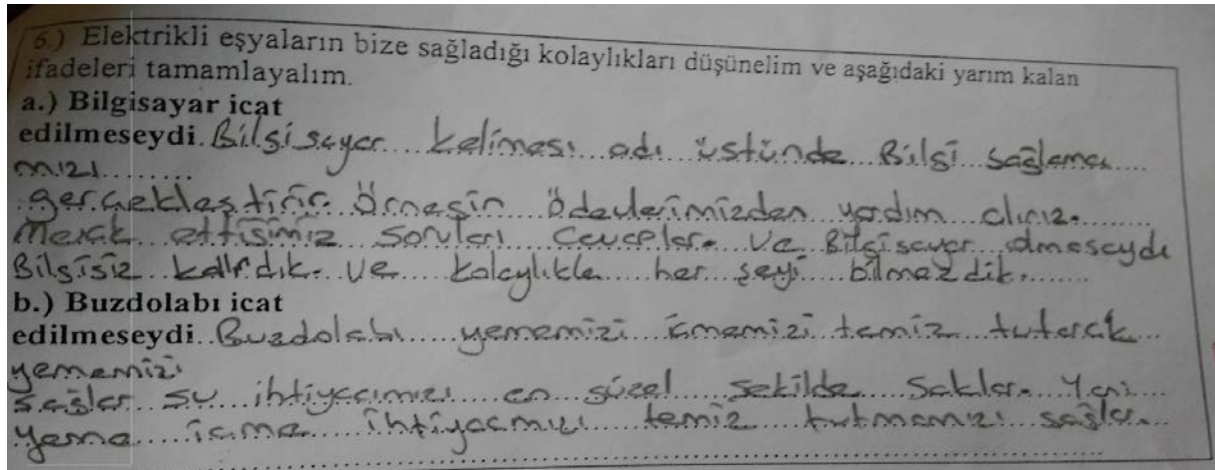 6.) Elektrikli eşyaların bize sağladığı kolaylıkları düşünelim ve aşağıdaki yarım kalan
ifadeleri tamamlayalım.
a.) Bilgisayar icat
edilmeseydi. Bilgisayar kelimesi adı üstünde Bilgi sağlama
mızı
gerçekleştirir. Örneğin Ödevlerimizden yardım alırız.
Merak ettiğimiz soruları cevaplar. Ve Bilgisayar olmasaydı
Bilgisiz kalırdık. Ve kolaylıkla her şeyi bilmezdik.
b.) Buzdolabı icat
edilmeseydi. Buzdolabı yememizi içmemizi temiz tutarak
yememizi
sağlar su ihtiyacımızı en güzel şekilde saklar. Yani
yeme içme ihtiyacımızı temiz tutmamızı sağlar.